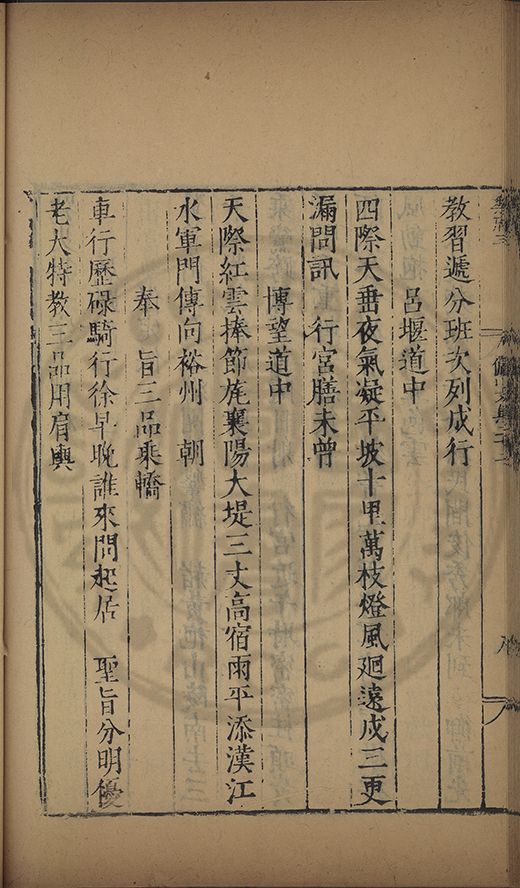 教習遞分班次列成行
呂堰道中
四際天垂夜氣凝平坡十里萬枝燈風廻遠成三更
漏問訊 行宮膳未曾
博望道中
天際紅雲捧節旄襄陽大堤三丈高宿雨平添漢江
水軍門傳向裕州 朝
奉 旨三品乘轎
車行歷碌騎行徐早晚誰來問起居 聖旨分明優
老大特教三品用肩輿